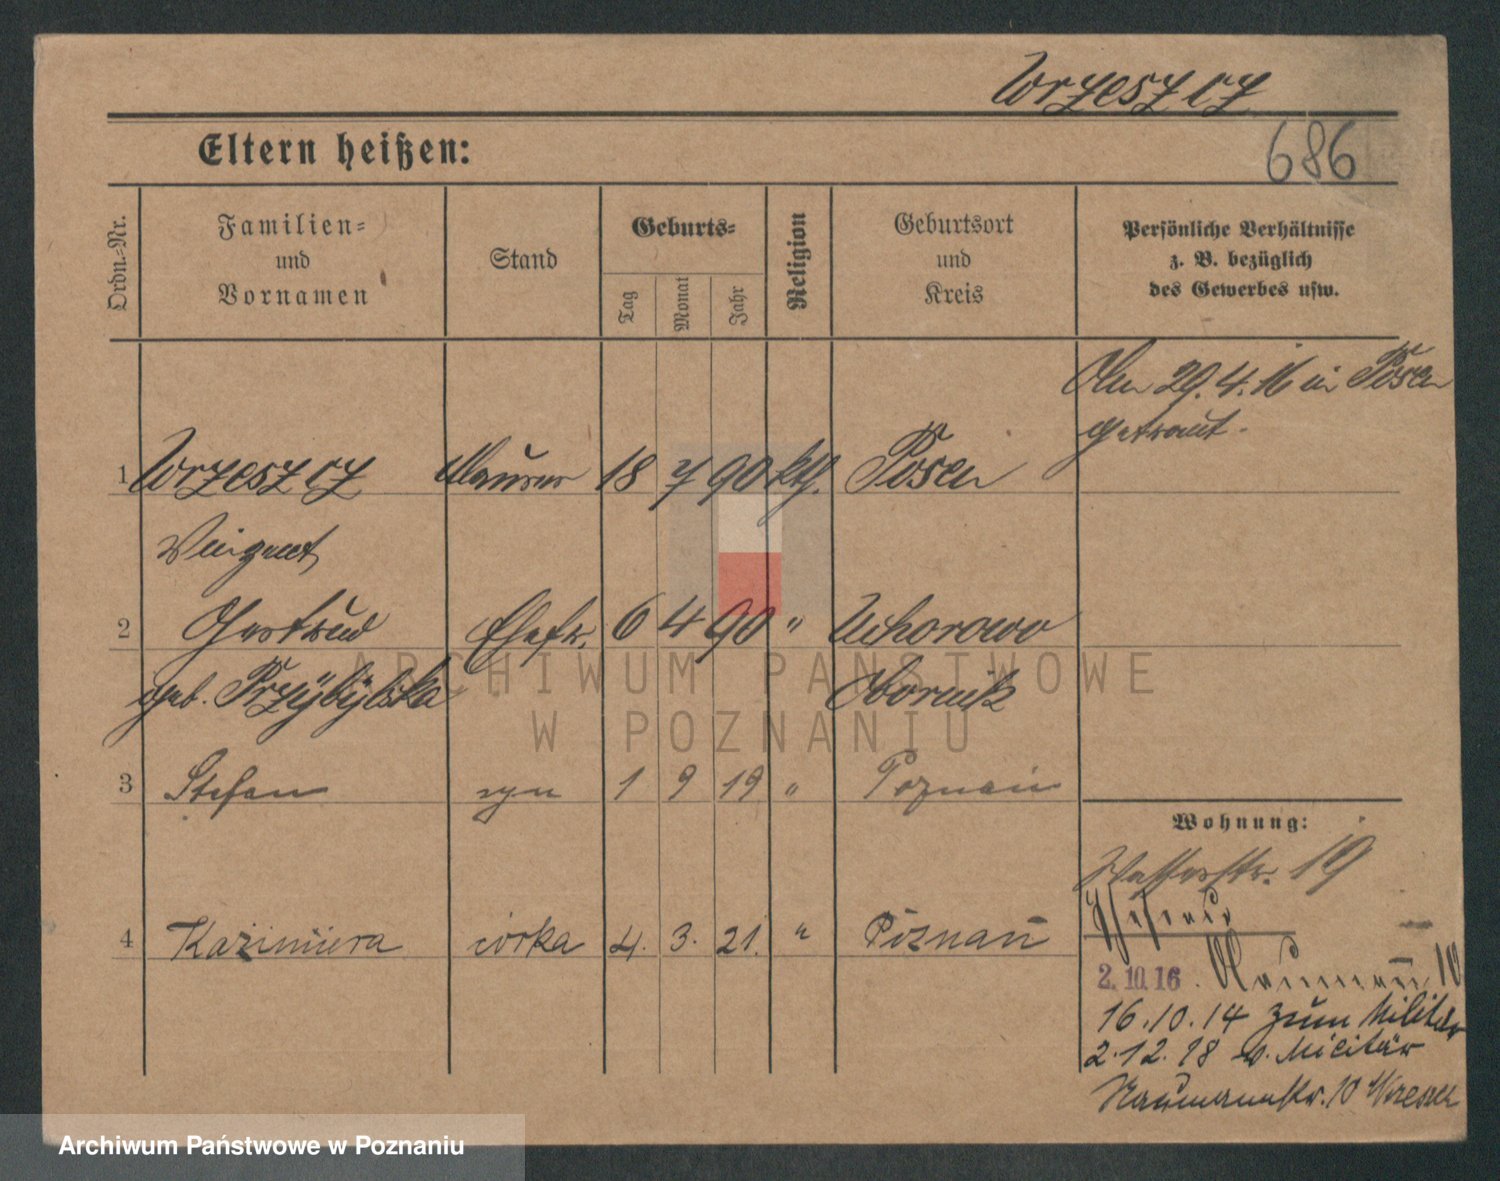 Wrzeszcz
686
Eltern heißen:
Ordn.=Nr.
Familien=
und
Vornamen
Stand
Geburts=
Tag
Monat
Jahr
Religion
Geburtsort
und
Kreis
Persönliche Verhältnisse
z. B. bezüglich
des Gewerbes usw.
Am 29.4.16 in Posen
getraut.
1 Wrzeszcz Maurer 18 7 90 kth. Posen
Vinzent
2 Gertrud Ehefr. 6 4 90 " Uchorowo
geb. Przybylska Obornik
3 Stefan syn 1 9 19 " Poznań
Wohnung:
Wasserstr. 19
4 Kazimiera córka 4. 3. 21. " Poznań
2.10.16. Naumann 10
16.10.14 zum Militär
2.12.18 v. Militär
Naumannstr. 10 Wrzeszcz
ARCHIWUM PAŃSTWOWE
W POZNANIU
Archiwum Państwowe w Poznaniu